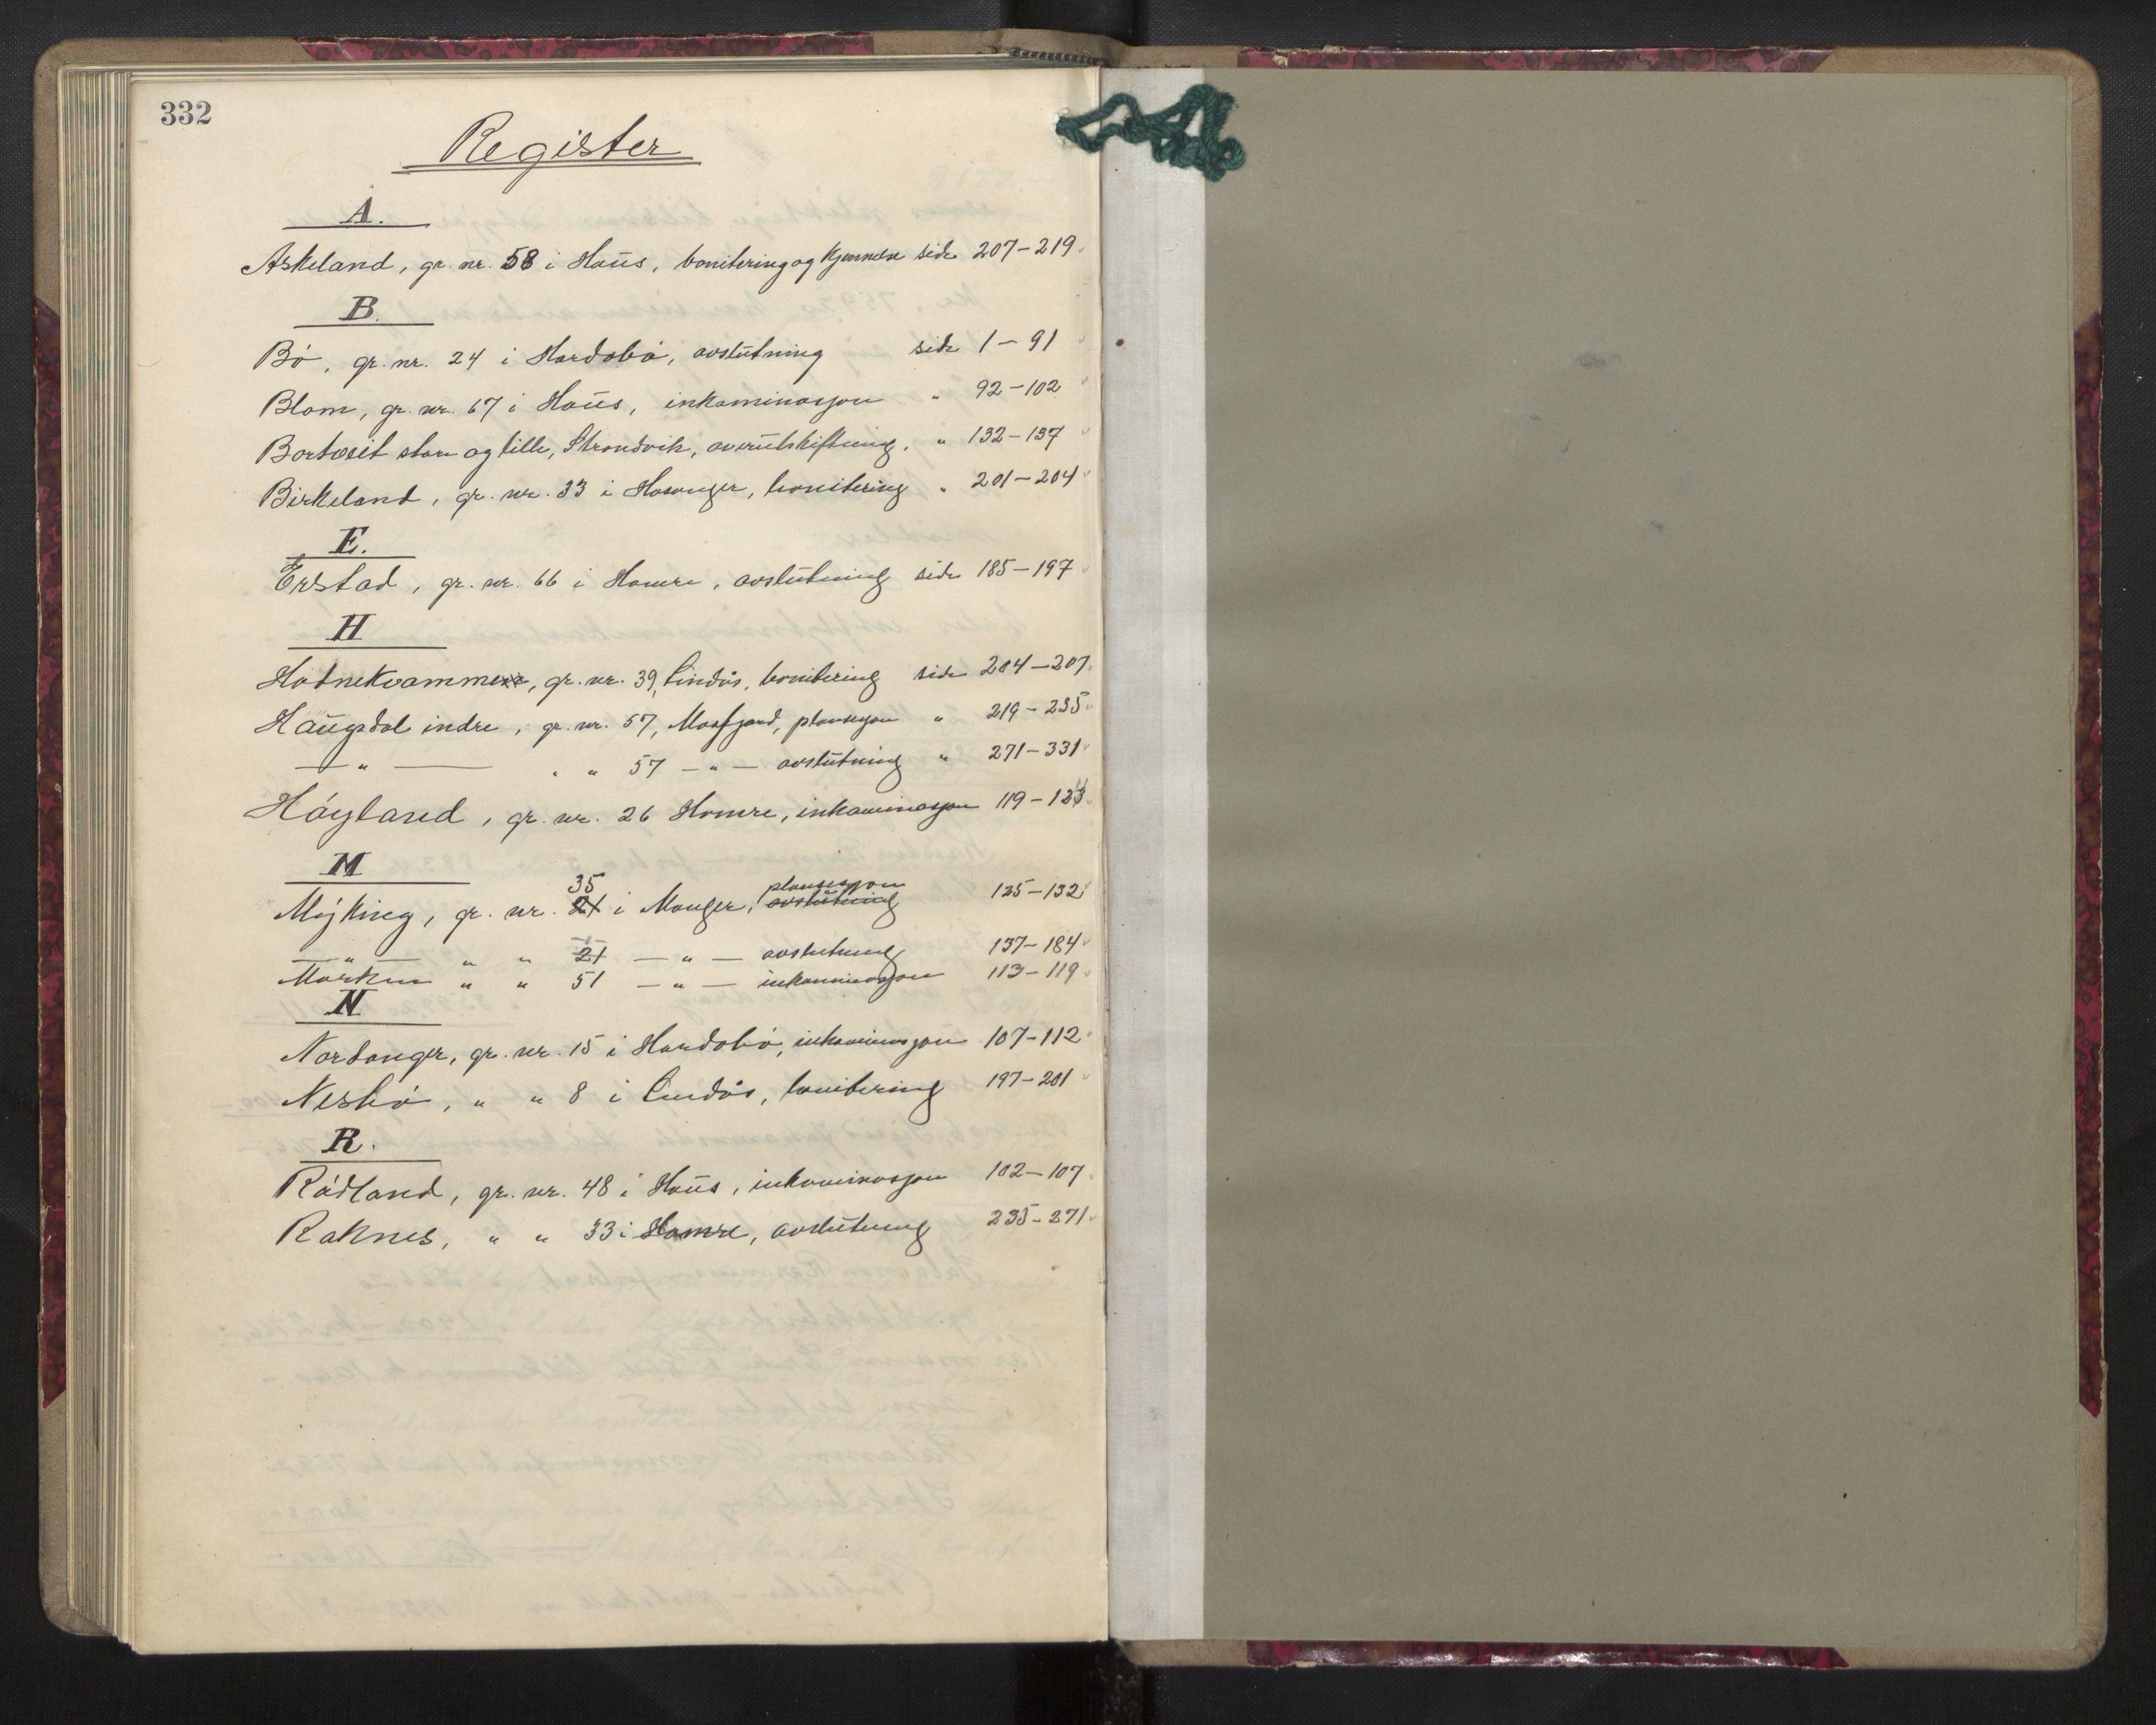 332
Register
A.
Askeland, gr. nr. 58 i Haus, bonitering og kjennelse side 207-219
B.
Bø, gr. nr. 24 i Hordabø, avslutning side 1-91
Blom, gr. nr. 67 i Haus, inkaminasjon " 92-102
Bortveit store og lille, Strandvik, overutskiftning, " 132-137
Birkeland, gr. nr. 33 i Hosanger, bonitering " 201-204
E.
Erstad, gr. nr. 66 i Hamre, avslutning side 185-197
H
Hodnekvamme, gr. nr. 39, Lindås, bonitering side 204-207
Haugsdal indre, gr. nr. 57, Masfjord, plansesjon " 219-235
— " — " " 57 — " — avslutning " 271-331
Høyland, gr. nr. 26 Hamre, inkaminasjon 119-123
M
35 plansesjon
Mjøking, gr. nr. 21 i Manger, avslutning 125-132
— " — " " 21 — " — avslutning 137-184
Marken " " 51 — " — inkaminasjon 113-119
N
Nordanger, gr. nr. 15 i Hordabø, inkaminasjon 107-112
Nesbø, " " 8 i Lindås, bonitering 197-201
R.
Rødland, gr. nr. 48 i Haus, inkaminasjon 102-107
Raknes, " " 33 i Hamre, avslutning 235-271